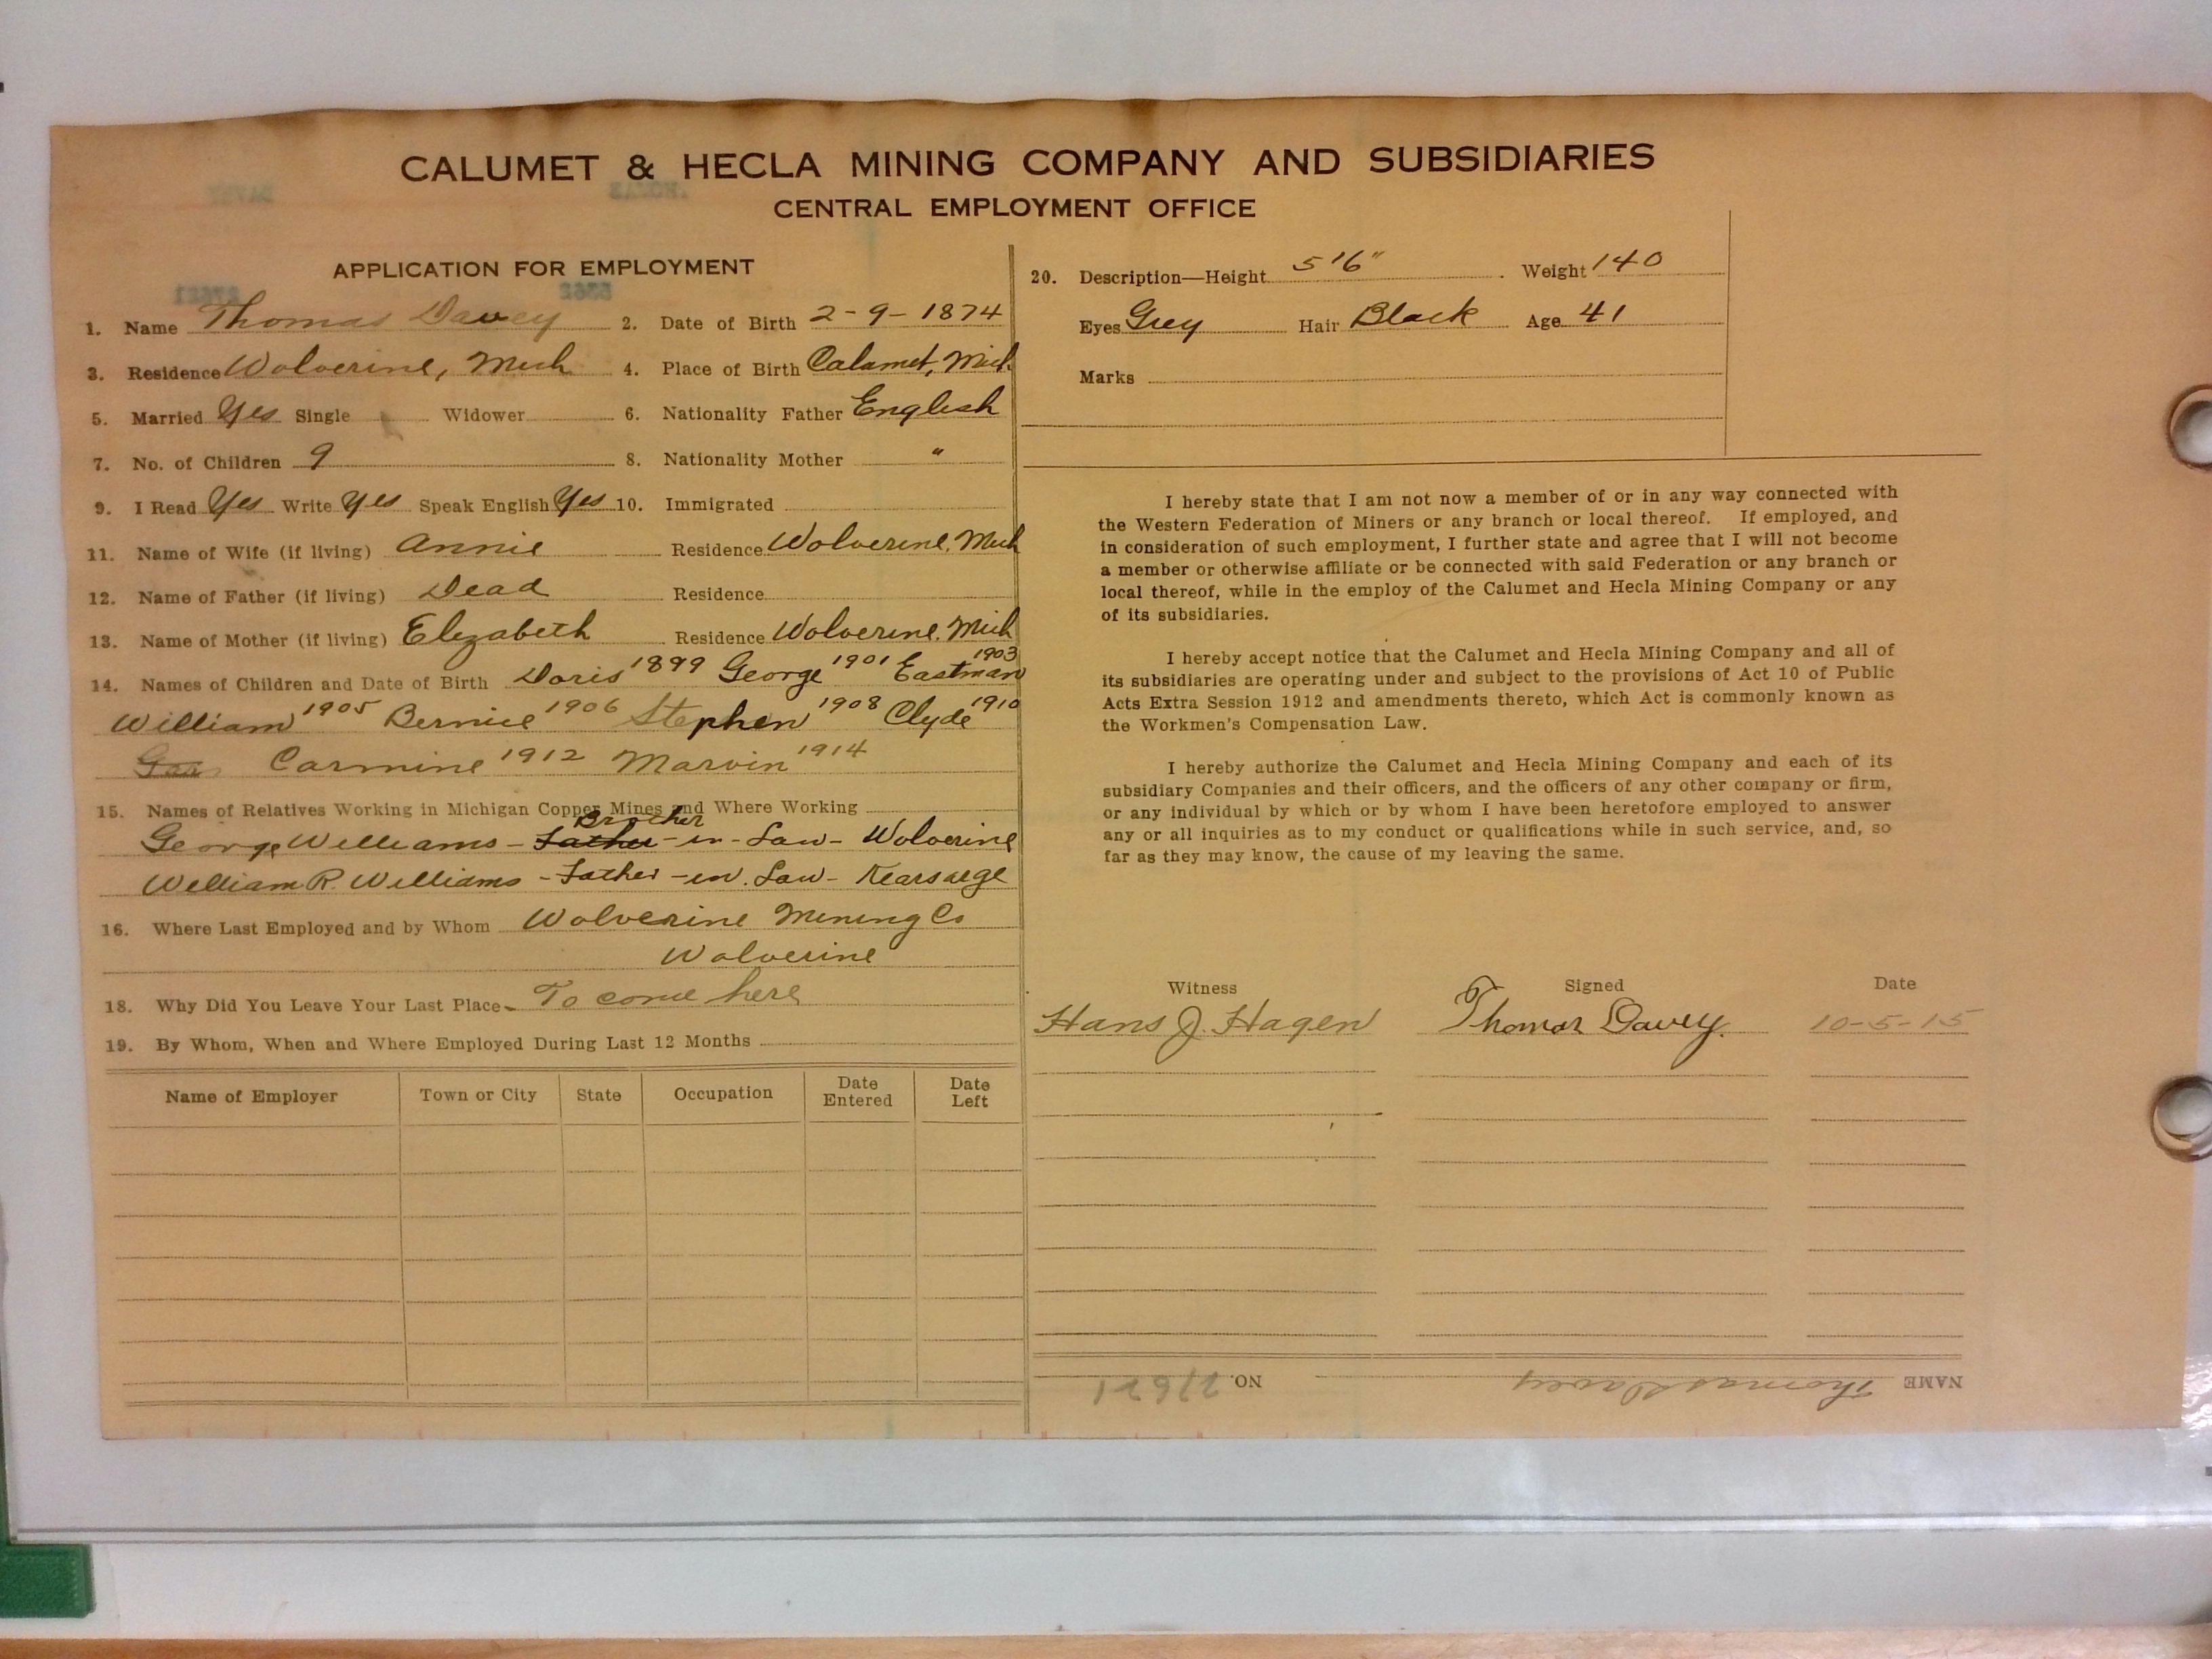 CALUMET & HECLA MINING COMPANY AND SUBSIDIARIES
CENTRAL EMPLOYMENT OFFICE
APPLICATION FOR EMPLOYMENT
1. Name Thomas Davey 2. Date of Birth 2-9-1874
3. Residence Wolverine, Mich 4. Place of Birth Calumet, Mich.
5. Married Yes Single Widower 6. Nationality Father English
7. No. of Children 9 8. Nationality Mother "
9. I Read Yes Write Yes Speak English Yes 10. Immigrated
11. Name of Wife (if living) Annie Residence Wolverine, Mich
12. Name of Father (if living) Dead Residence
13. Name of Mother (if living) Elizabeth Residence Wolverine, Mich
14. Names of Children and Date of Birth Doris 1899 George 1901 Eastman 1903
William 1905 Bernice 1906 Stephen 1908 Clyde 1910
Carmine 1912 Marvin 1914
15. Names of Relatives Working in Michigan Copper Mines and Where Working
Brother
George Williams - Father-in-Law - Wolverine
William R. Williams - Father-in-Law - Kearsarge
16. Where Last Employed and by Whom Wolverine Mining Co
Wolverine
18. Why Did You Leave Your Last Place To come here
19. By Whom, When and Where Employed During Last 12 Months
Name of Employer Town or City State Occupation Date Entered Date Left
20. Description—Height 5'6" Weight 140
Eyes Grey Hair Black Age 41
Marks
I hereby state that I am not now a member of or in any way connected with
the Western Federation of Miners or any branch or local thereof. If employed, and
in consideration of such employment, I further state and agree that I will not become
a member or otherwise affiliate or be connected with said Federation or any branch or
local thereof, while in the employ of the Calumet and Hecla Mining Company or any
of its subsidiaries.
I hereby accept notice that the Calumet and Hecla Mining Company and all of
its subsidiaries are operating under and subject to the provisions of Act 10 of Public
Acts Extra Session 1912 and amendments thereto, which Act is commonly known as
the Workmen's Compensation Law.
I hereby authorize the Calumet and Hecla Mining Company and each of its
subsidiary Companies and their officers, and the officers of any other company or firm,
or any individual by which or by whom I have been heretofore employed to answer
any or all inquiries as to my conduct or qualifications while in such service, and, so
far as they may know, the cause of my leaving the same.
Witness Signed Date
Hans J. Hagen Thomas Davey. 10-5-15
NAME Thomas Davey NO. 27621